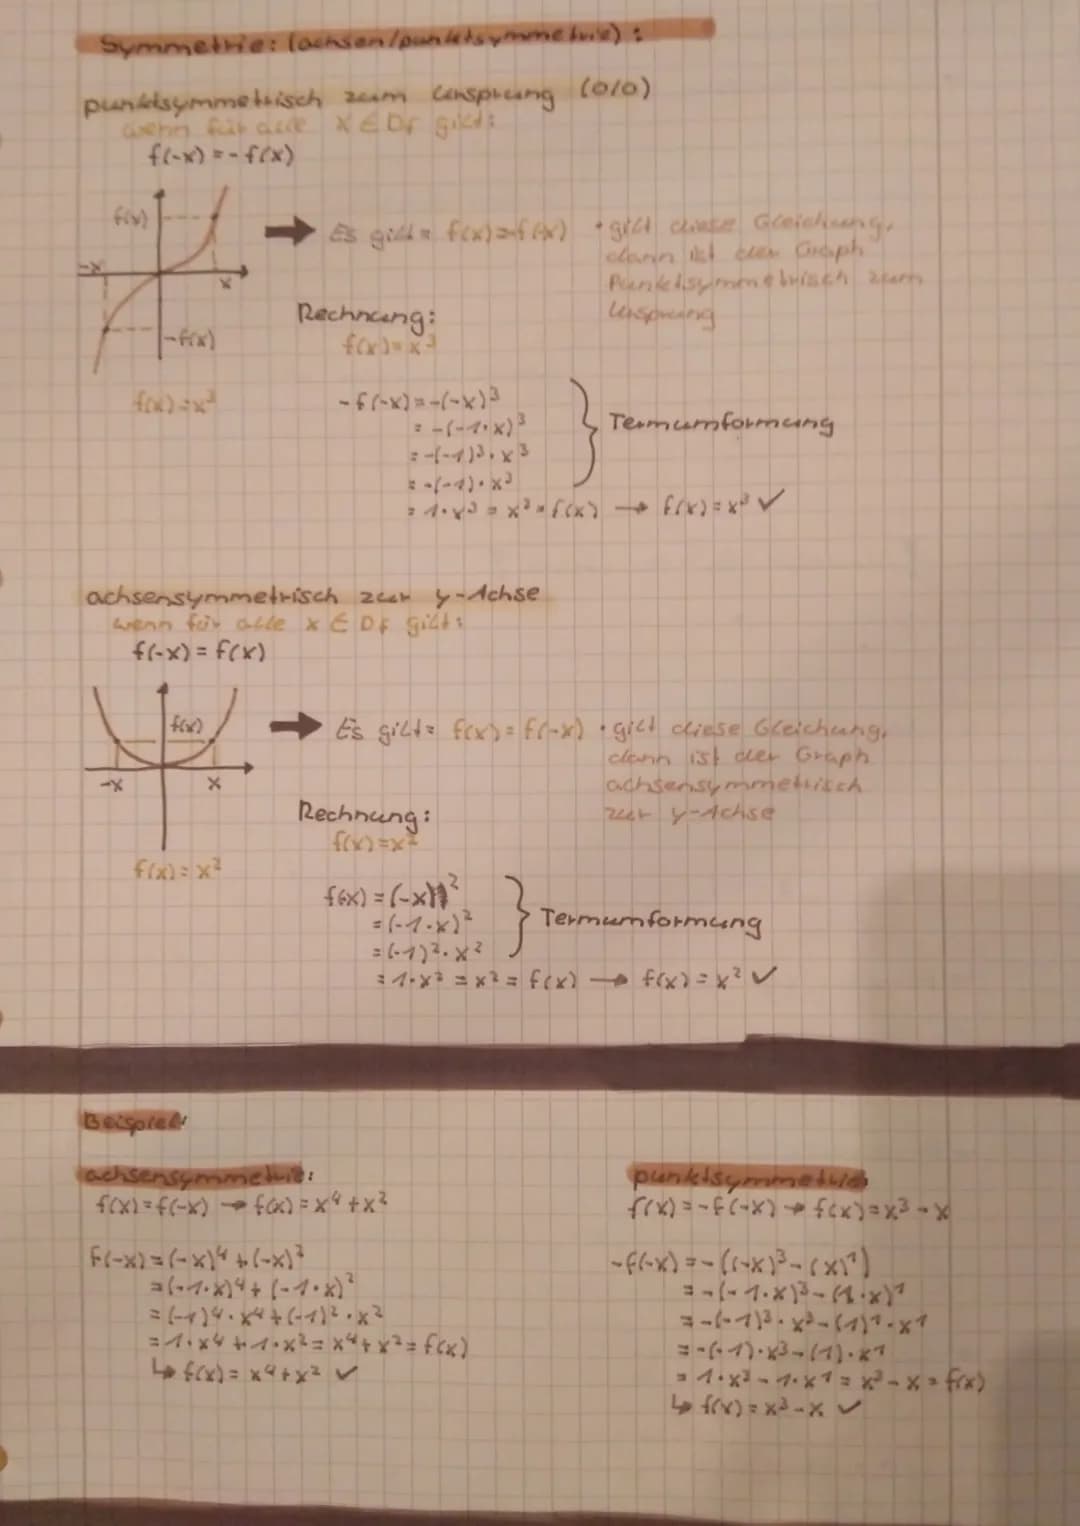 Symmetrie: (achsen/punktsymmetrie):
punktsymmetrisch zum Ursprung (0/0)
wenn für alle x ∈ Df gilt:
f(-x) = -f(x)
f(x)
-x
x
-f(x)
f(x) = x³
→ Es gilt: f(x) = -f(-x)
• gilt diese Gleichung,
dann ist der Graph
Punktsymmetrisch zum
Ursprung
Rechnung:
f(x) = x³
-f(-x) = -(-x)³
= -(-1·x)³
= -(-1)³·x³
= -(-1)·x³
Termumformung
= 1·x³ = x³ = f(x) → f(x) = x³ ✓
achsensymmetrisch zur y-Achse
wenn für alle x ∈ Df gilt:
f(-x) = f(x)
f(x)
-x
x
f(x) = x²
→ Es gilt: f(x) = f(-x)
• gilt diese Gleichung,
dann ist der Graph
achsensymmetrisch
zur y-Achse
Rechnung:
f(x) = x²
f(x) = (-x)²
= (-1·x)²
= (-1)²·x²
Termumformung
= 1·x² = x² = f(x) → f(x) = x² ✓
Beispiel:
achsensymmetrie:
f(x) = f(-x) → f(x) = x⁴ + x²
f(-x) = (-x)⁴ + (-x)²
= (-1·x)⁴ + (-1·x)²
= (-1)⁴·x⁴ + (-1)²·x²
= 1·x⁴ + 1·x² = x⁴ + x² = f(x)
↳ f(x) = x⁴ + x² ✓
punktsymmetrie
f(x) = -f(-x) → f(x) = x³ - x
-f(-x) = -((-x)³ - (x)¹)
= -(-1·x)³ - (1·x)¹
= -(-1)³·x³ - (1)¹·x¹
= -(-1)·x³ - (1)·x¹
= 1·x³ - 1·x¹ = x³ - x = f(x)
↳ f(x) = x³ - x ✓